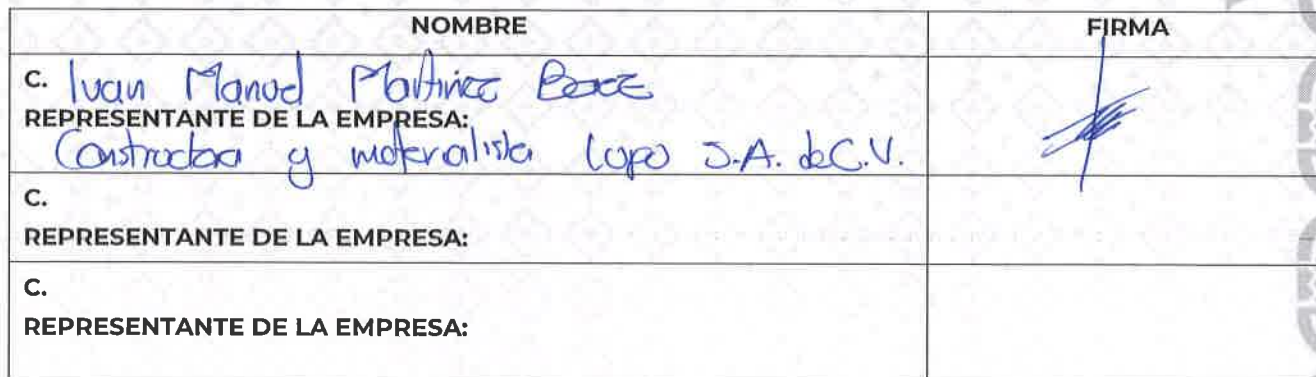 NOMBRE FIRMA
C. Ivan Manuel Martinez
REPRESENTANTE DE LA EMPRESA:
Constructora y materialista Lopo S.A. de C.V.
C.
REPRESENTANTE DE LA EMPRESA:
C.
REPRESENTANTE DE LA EMPRESA: